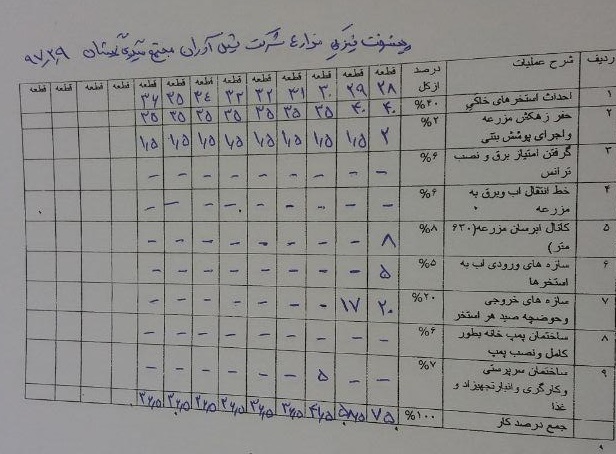 پیشرفت فیزیکی مزارع شرکت فیل آوران مجتمع ۹۷٫۲٫۹
ردیف شرح عملیات درصد ازکل قطعه ۲۸ قطعه ۲۹ قطعه ۳۰ قطعه ۳۱ قطعه ۳۲ قطعه ۳۳ قطعه ۳۴ قطعه ۳۵ قطعه ۳۶ قطعه قطعه قطعه
۱ احداث استخرهای خاکی %۴۰ ۴۰ ۴۰ ۳۵ ۳۵ ۳۵ ۳۵ ۳۵ ۳۵ ۳۵
۲ حفر زهکش مزرعه واجرای پوشش بتنی %۲ ۲ ۱٫۵ ۱٫۵ ۱٫۵ ۱٫۵ ۱٫۵ ۱٫۵ ۱٫۵ ۱٫۵
۳ گرفتن امتیاز برق و نصب ترانس %۶ - - - - - - - - -
۴ خط انتقال اب وبرق به مزرعه %۶ - - - - - - - - -
۵ کانال ابرسان مزرعه(۶۳۰ متر) %۸ ۸ - - - - - - - -
۶ سازه های ورودی اب به استخرها %۵ ۵ - - - - - - - -
۷ سازه های خروجی وحوضچه صید هر استخر %۲۰ ۲۰ ۱۷ - - - - - - -
۸ ساختمان پمپ خانه بطور کامل ونصب پمپ %۶ - - - - - - - - -
۹ ساختمان سرپرستی وکارگری وانبارتجهیزاد و غذا %۷ - - ۵ - - - - - -
جمع درصد کار %۱۰۰ ۷۵ ۵۸٫۵ ۴۱٫۵ ۳۶٫۵ ۳۶٫۵ ۳۶٫۵ ۳۶٫۵ ۳۶٫۵ ۳۶٫۵
۹